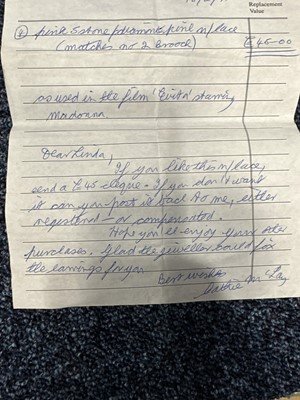 Replacement
Value
pink 5 stone pink n/place
(matches no 2 brooch) £45-00
as used in the film 'Evita' starring
Madonna
Dear Linda,
If you like this n/place,
send a £45 cheque. If you don't want
it can you post it back to me, either
registered or compensated.
Hope you'll enjoy your other
purchases. Glad the jeweller could fix
the earrings for you
Best wishes